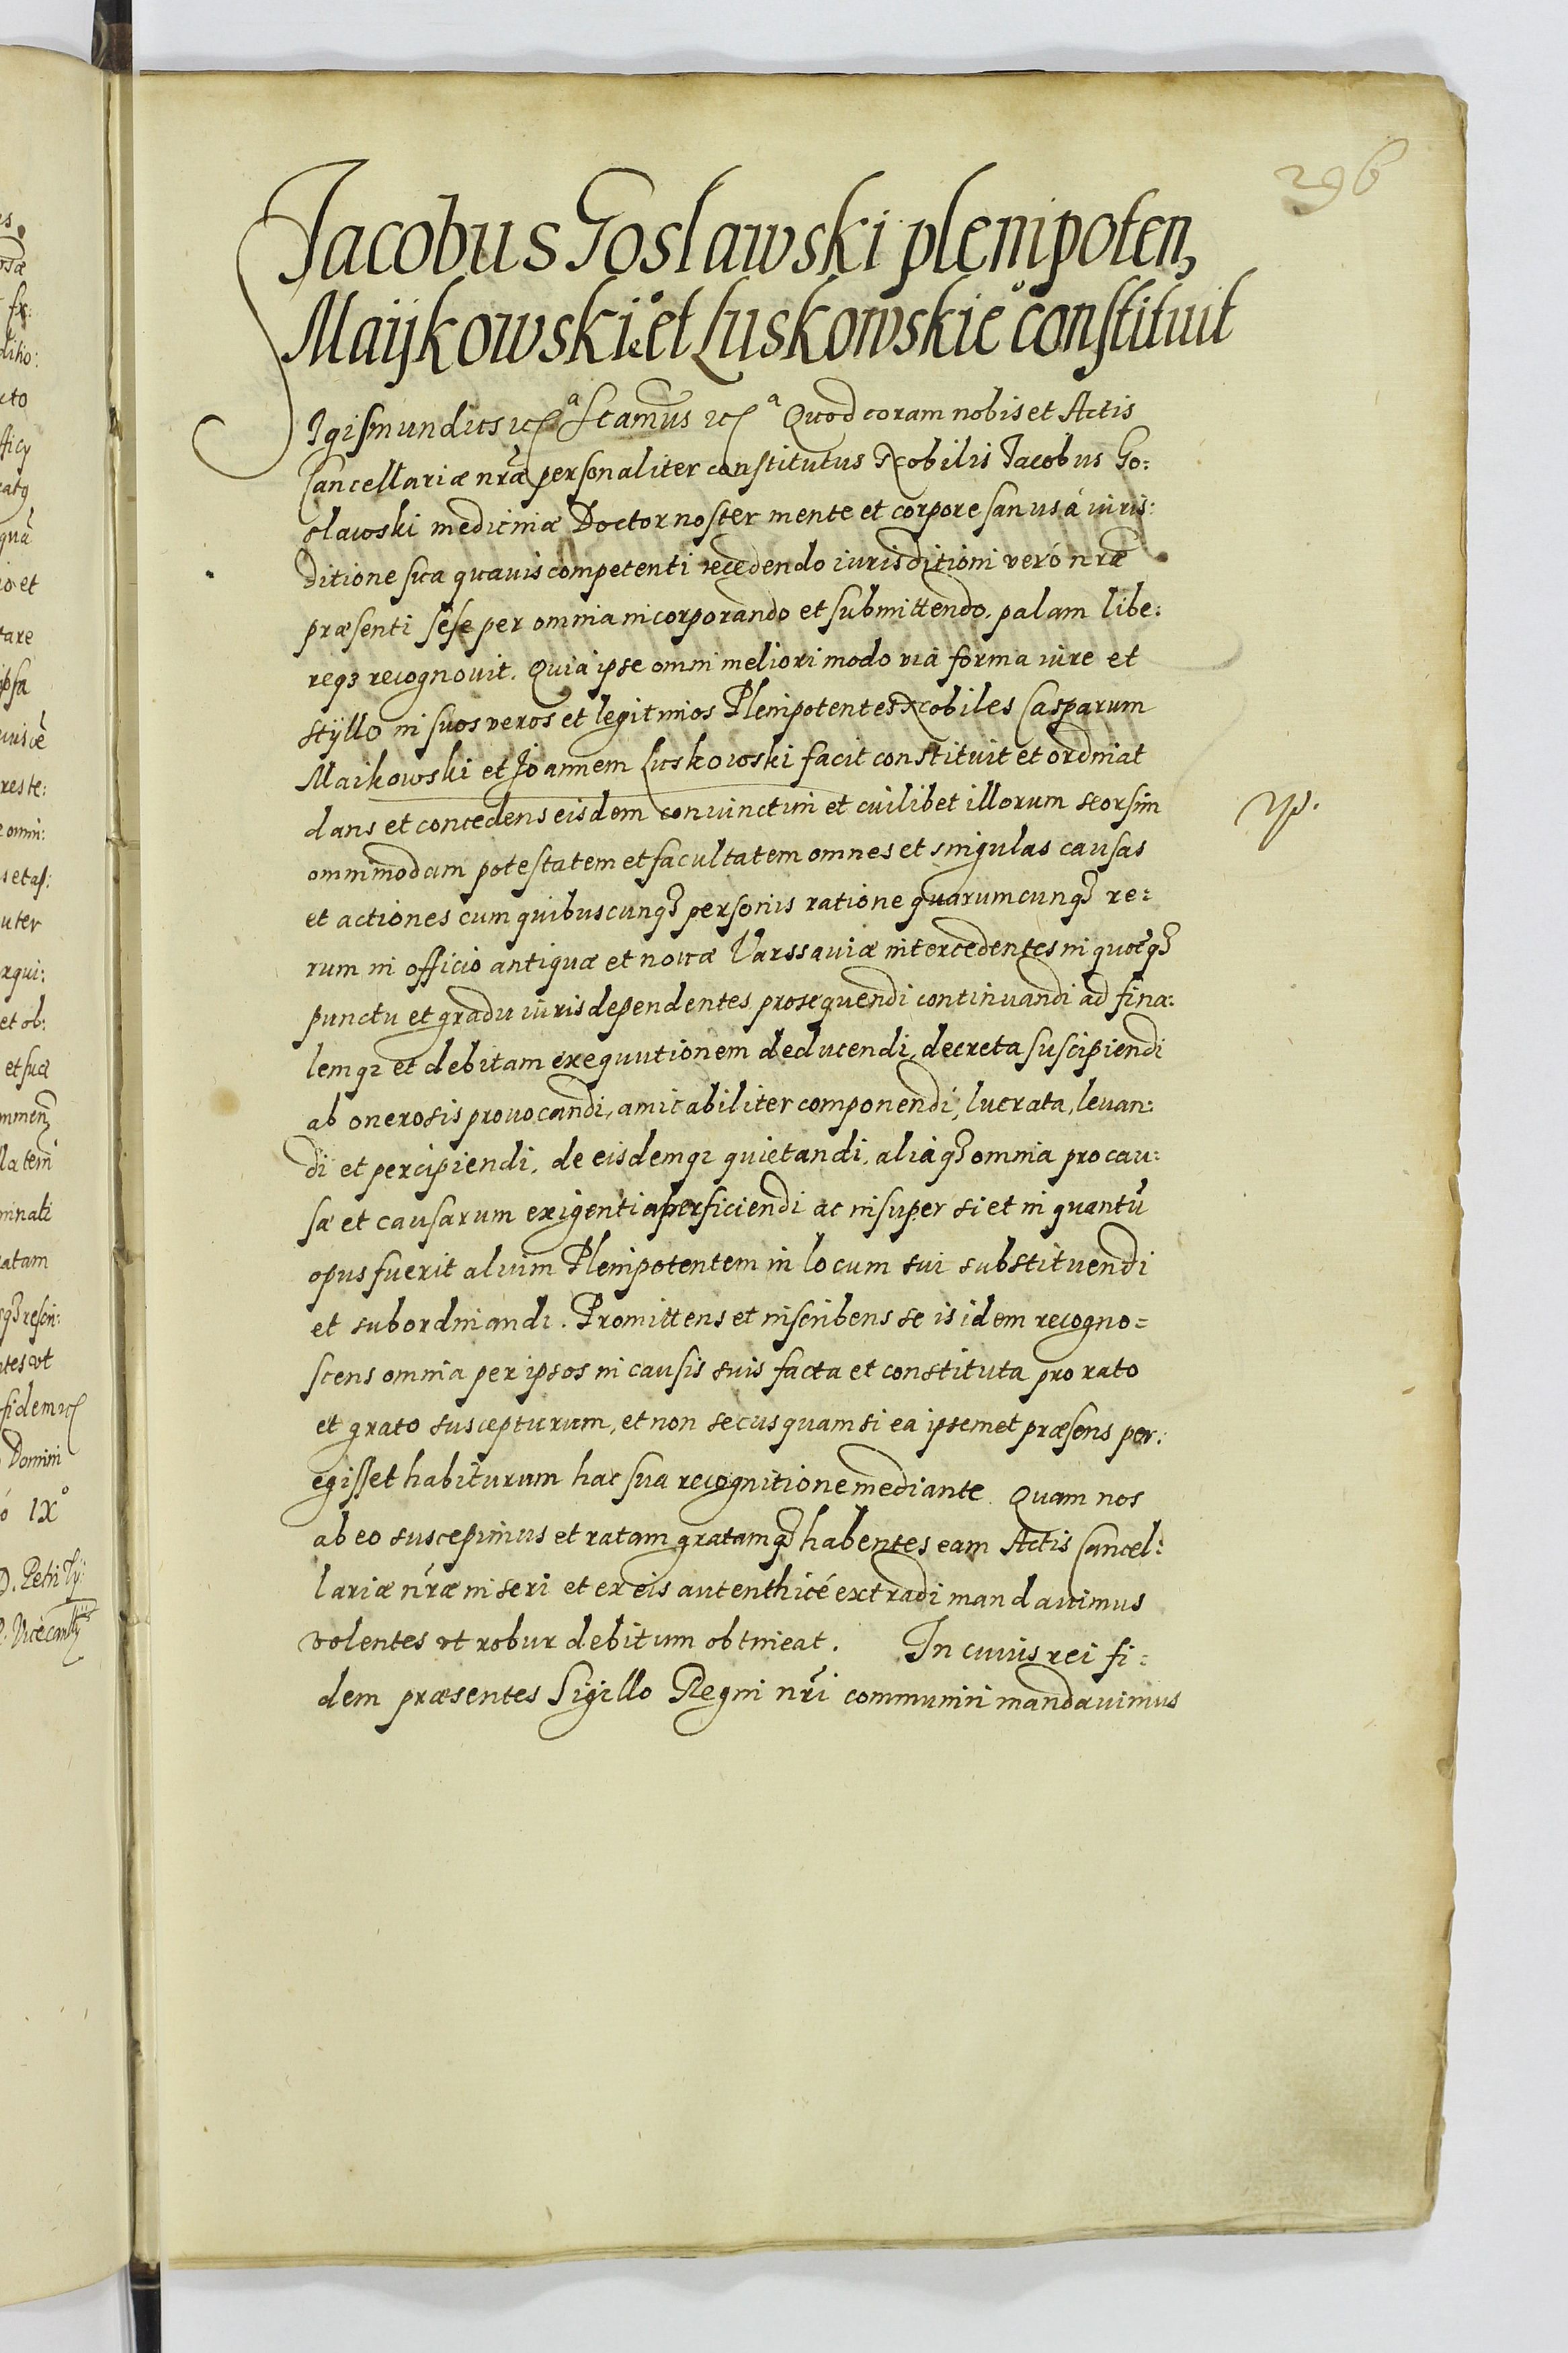 296
Jacobus Goslawski plenipoten,
Maijkowskie° et Luskowskie° constituit
Igismundus etc. Scamus etc. Quod coram nobis et Actis
Cancellariæ nr̃æ personaliter constitutus Nobilis Jacobus Go:
slawski medicinæ Doctor noster mente et corpore sanus á iuris:
ditione sua quavis competenti recedendo iurisditioni veró nr̃æ
præsenti sese per omnia incorporando et submittendo, palam libe:
reqȝ recognouit. Quia ipse omni meliori modo via forma iure et
stÿllo in suos veros et legitimos Plenipotentes Nobiles Casparum
Maikowski et Joannem Luskowski facit constituit et ordinat
dans et concedens eisdem coniunctim et cuilibet illorum seorsim
yp.
omnimodam potestatem et facultatem omnes et singulas causas
et actiones cum quibuscunqȝ personis ratione quarumcunqȝ re:
rum in officio antiquæ et nowæ Varssaviæ intercedentes in quotqȝ
punctu et gradu iuris dependentes prosequendi continuandi ad fina:
lemqȝ et debitam exequutionem deducendi, decreta suscipiendi
ab onerosis prouocandi, amicabiliter componendi, lucrata, leuan:
di et percipiendi, de eisdemqȝ quietandi, aliaqȝ omnia pro cau:
sæ et causarum exigentia perficiendi ac insuper si et in quantũ
opus fuerit alium Plenipotentem in locum sui substituendi
et subordinandi. Promittens et inscribens se is idem recogno=
scens omnia per ipsos in causis suis facta et constituta pro rato
et grato suscepturum, et non secus quam si ea ipsemet præsens per:
egisset habiturum hac sua recognitione mediante. Quam nos
ab eo suscepimus et ratam gratamqȝ habentes eam Actis Cancel:
lariæ nr̃æ inseri et ex eis autenthicé extradi mandauimus
volentes vt robur debitum obtineat. In cuius rei fi:
dem præsentes Sigillo Regni nr̃i communiri mandauimus